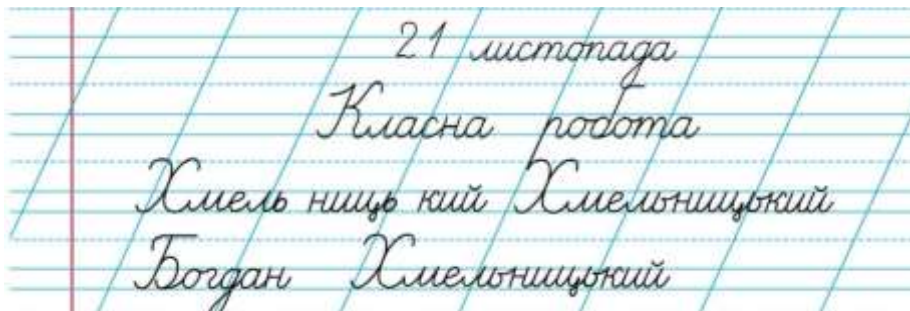 21 листопада
Класна робота
Хмель ниць кий Хмельницький
Богдан Хмельницький